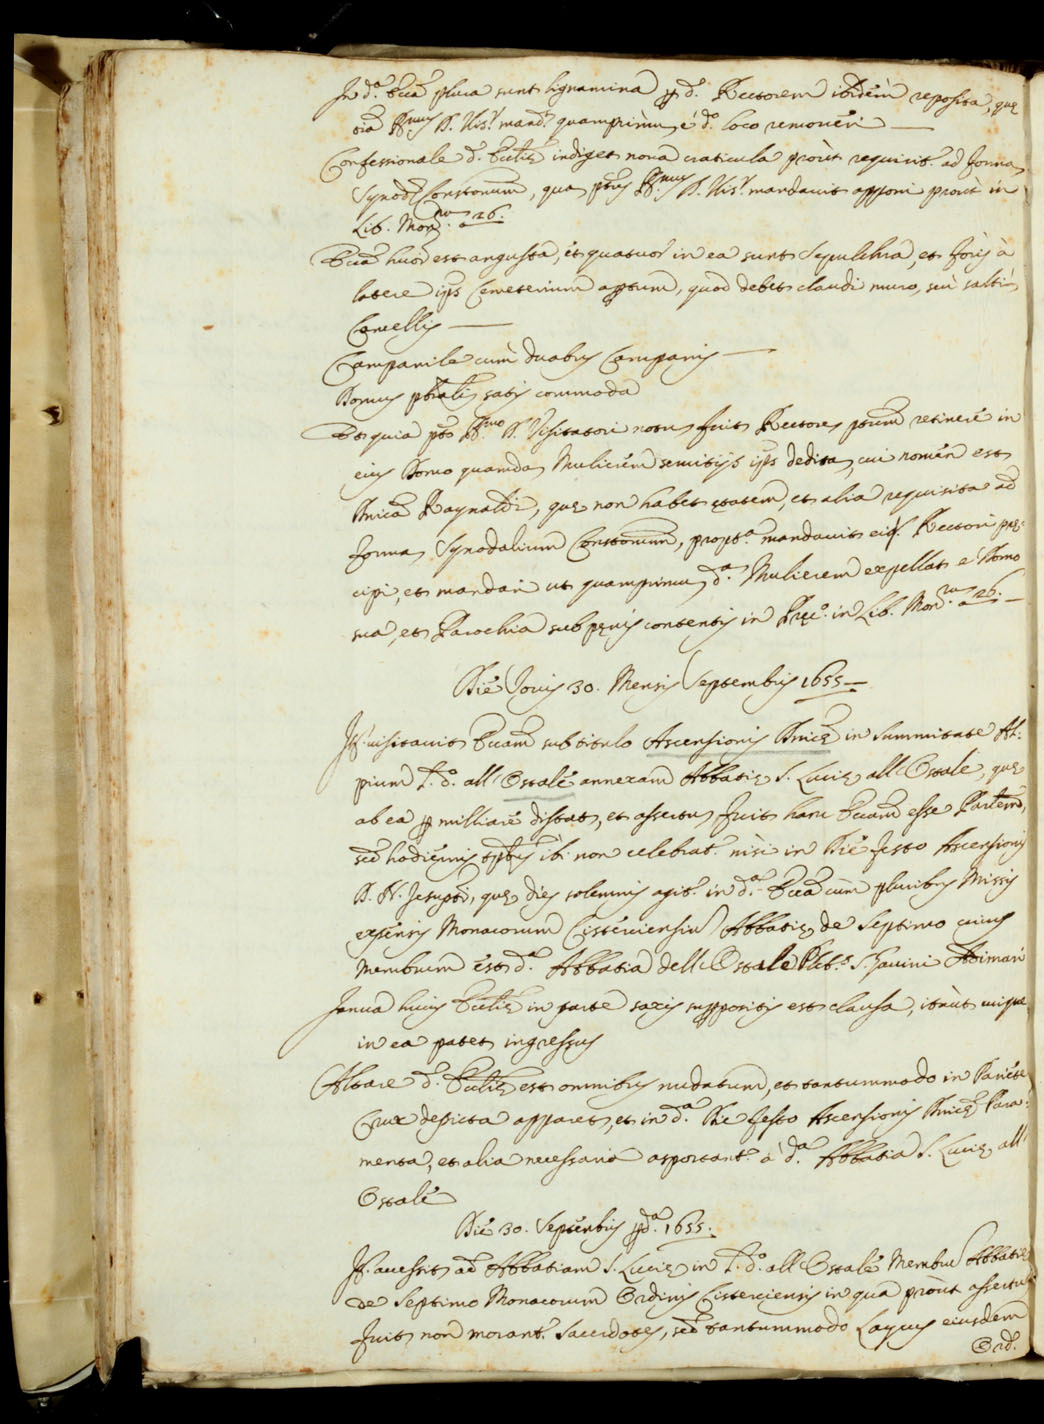 In d.ª Eccª plura sunt lignamina p d. Rectorem ibidem reposita, que
Ill.mus D. Vis.r mand.t quamprimum è d.º loco removeri
Confessionale d. Ecclię indiget nova craticula prout requirit.r ad forma
Synod. Constonum, qua pts Ill.mus D. Vis.r mandavit apponi prout in
Lib. Mon.rum a 26.
Eccª huod est angusta, et quatuor in ea sunt Sepulchra, et foris à
latere ips Cemeterium aptum, quod debet claudi muro, seu saltim
Cancellis
Campanile cum duabus Campanis
Domus ptialis satis commoda
Et quia pto Ill.mo D. Visitatori notu fuit Rectore ptum retinere in
eius Domo quamda Mulierem servitijs ips dedita, cui nomen est
Raynaldi, que non habet ętatem, et alia requisita ad
forma Synodalium Constonum, propt.ª mandavit eid. Rectori prę-
cipi, et mandari ut quamprimu d.ª Mulierem expellat e Domo
sua, et Parochia sub pęnis contentis in Pręc.º in Lib. Mon.rum a 26.
Die Jovis 30. Mensis Septembris 1655
Itf. visitavit Eccam sub titulo Ascensionis Dnicę in summitate Al-
pium l. d. all Ostale annexam Abbatię S. Lucię all Ostale, que
ab ea p milliare distat, et assertu fuit hanc Eccam esse
sed hodiernis tptus ibi non celebrat.r nisi in Die festo Ascensionis
D. N. Jesupti, que dies solemnis agit.r in d.ª Eccª cum pluribus Missis
Monacorum Cisterciensiu Abbatię de Septimo cuius
membrum est d.ª Abbatia dell Ostale Pleb.s S. Gavini Adimari
Janua huius Ecclię in parte saxis suppositis est clausa, ita ut cuiqu
in ea patet ingressus
Altare d. Ecclię est omnibus nudatum, et tantummodo in Pariete
Crux depicta apparet, et in d.ª Die festo Ascensionis Dnicę Para-
menta, et alia necessaria asportant.r à d.ª Abbatia S. Lucię all
Ostale
Die 30. Septembris pd.ª 1655.
Itf. accessit ad Abbatiam S. Lucię in l. d. all Ostale Membru Abbatię
de Septimo Monacorum Ordinis Cisterciensis in qua prout assertu
fuit, non morant.r Sacerdotes, sed tantummodo Laycus eiusdem
Ord.